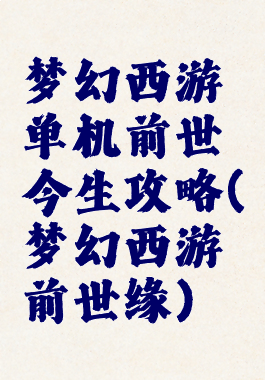 梦幻西游
单机前世
今生攻略(
梦幻西游
前世缘)